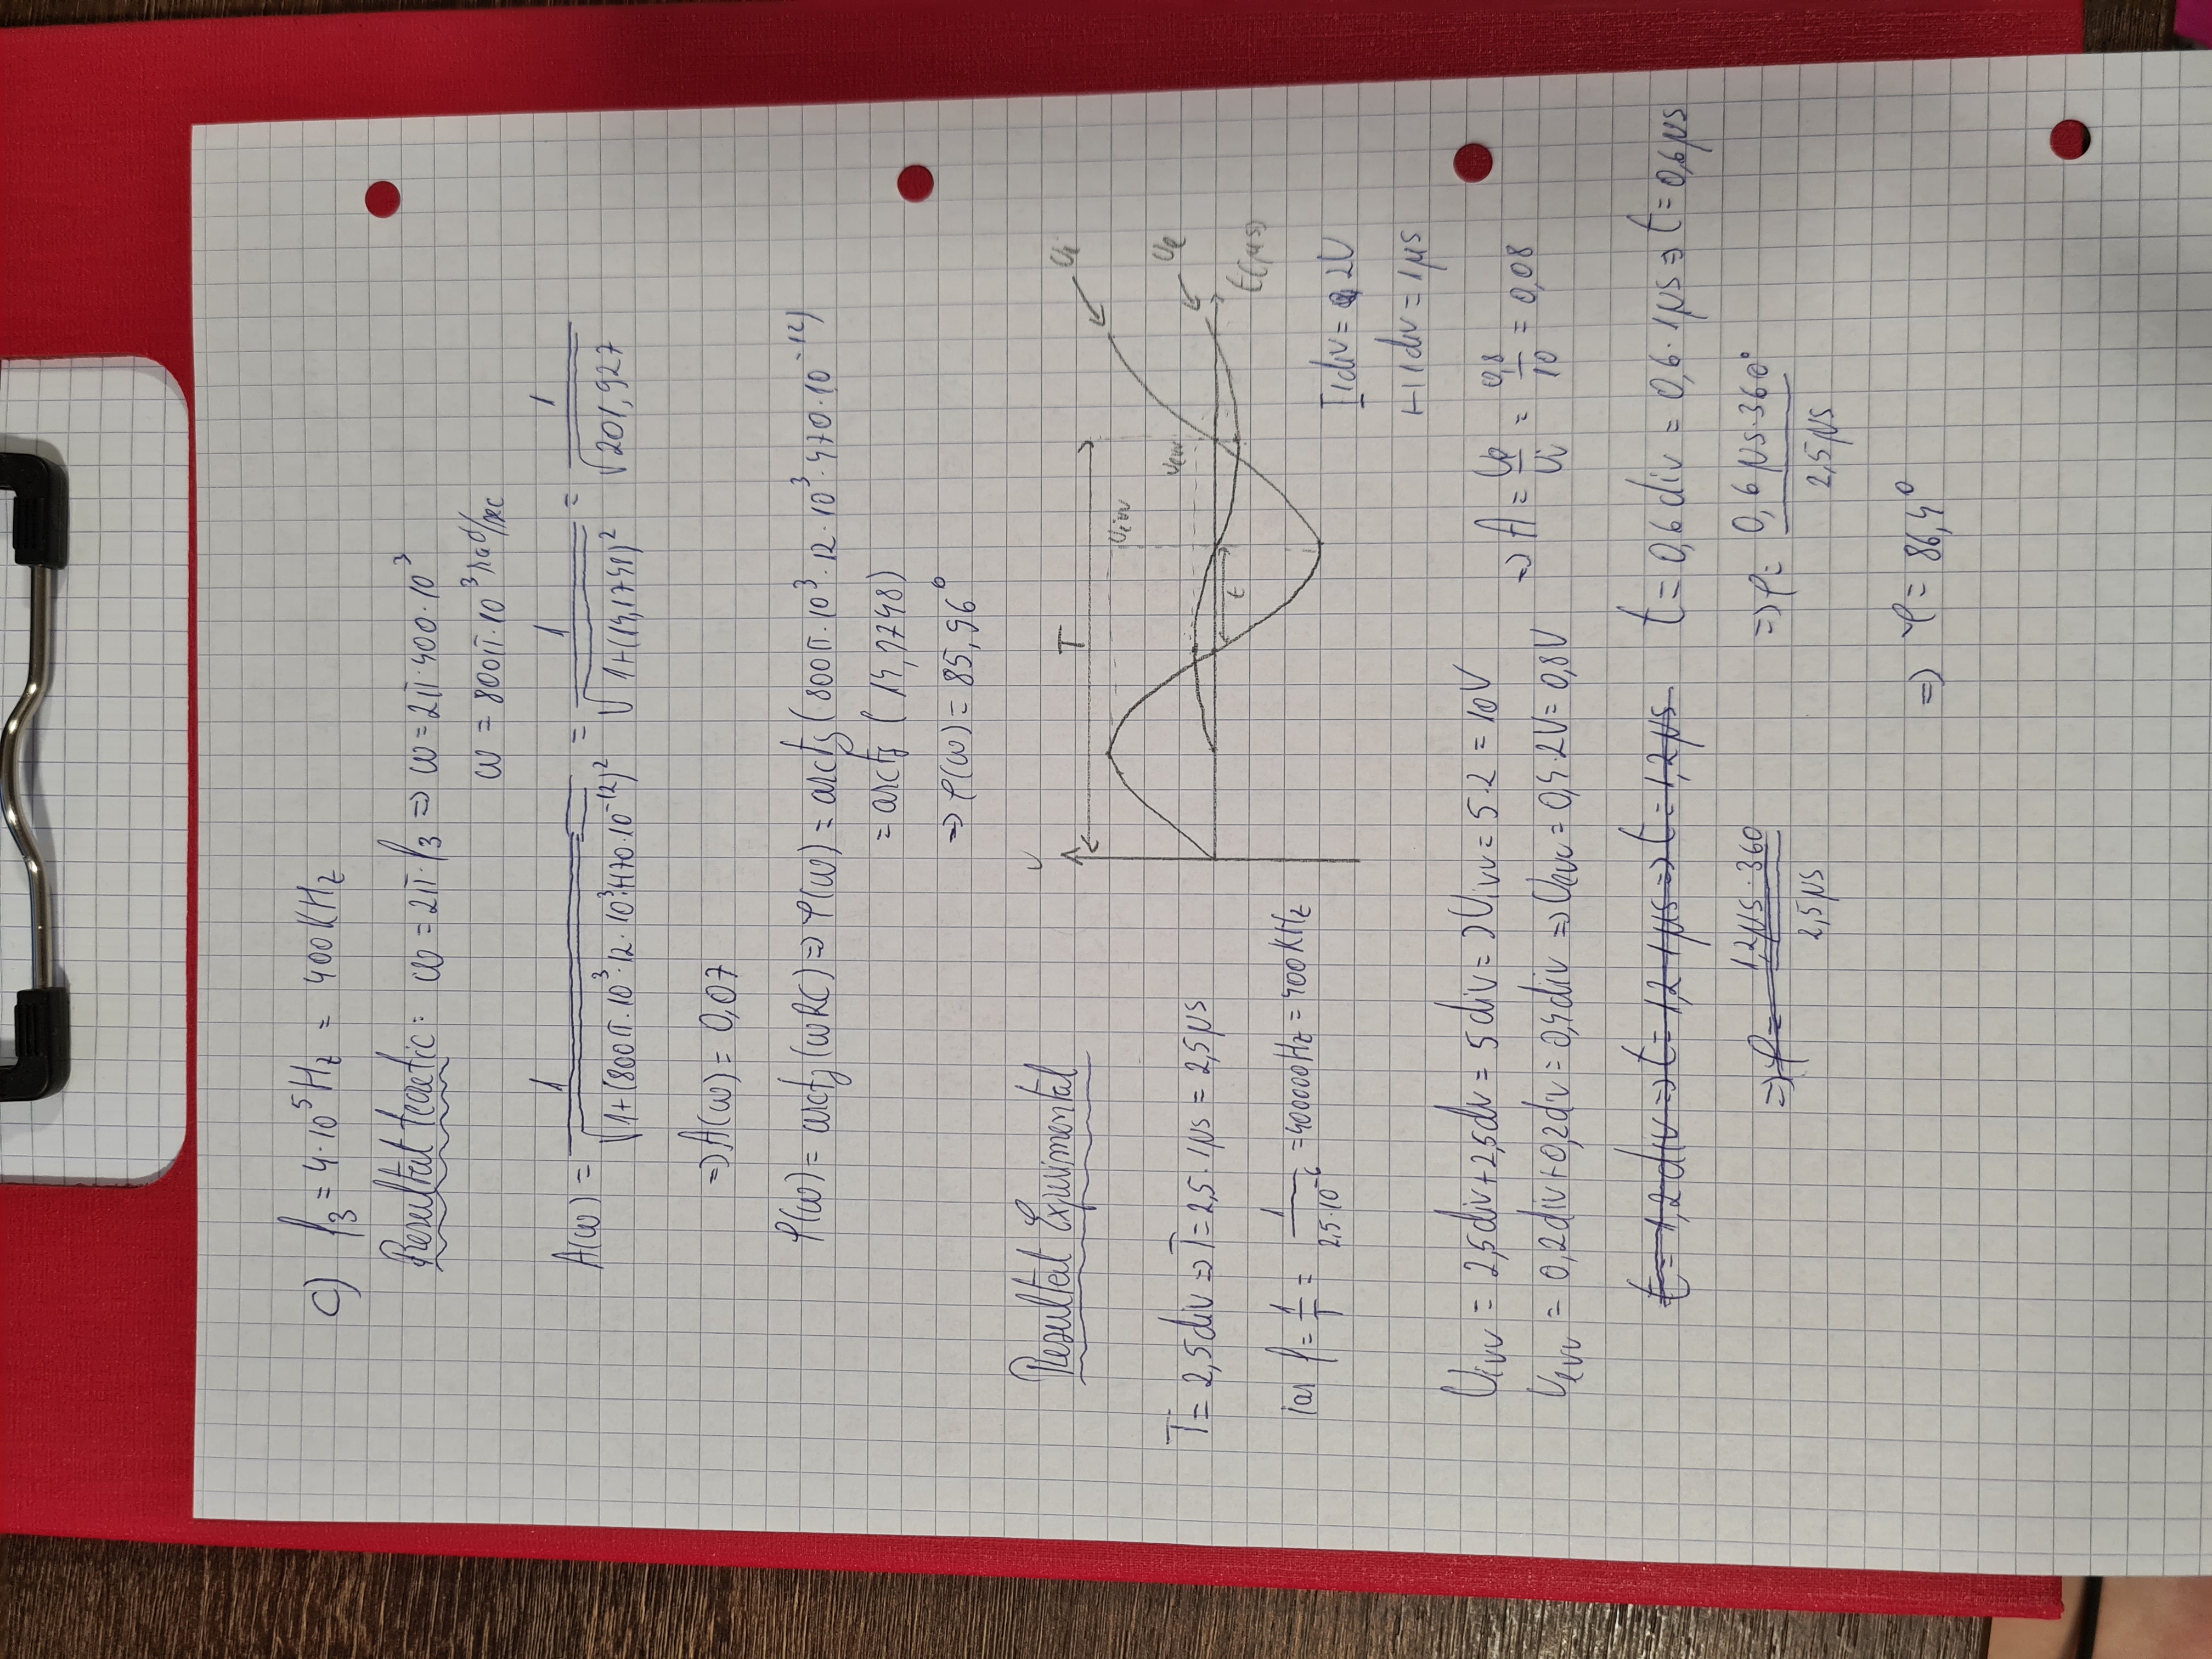 c) f₃ = 4·10⁵ Hz = 400 KHz
Rezultat teoretic: ω = 2π·f₃ => ω = 2π·400·10³
ω = 800π·10³ rad/sec
A(ω) = 1/√(1+(800π·10³·12·10³·470·10⁻¹²)²) = 1/√(1+(14,1748)²) = 1/√201,927
=> A(ω) = 0,07
φ(ω) = arctg(ωRC) => φ(ω) = arctg(800π·10³·12·10³·470·10⁻¹²)
= arctg (14,1748)
=> φ(ω) = 85,96°
Rezultat Experimental
U
T
Ui
Uivv
Uevv
Ue
t
t(μs)
T = 2,5 div => T = 2,5 · 1μs = 2,5 μs
iar f = 1/T = 1/(2,5·10⁻⁶) = 400000 Hz = 400 KHz
I 1 div = 2V
H 1 div = 1μs
Uivv = 2,5 div + 2,5 div = 5 div => Uivv = 5·2 = 10V
Uevv = 0,2 div + 0,2 div = 0,4 div => Uevv = 0,4·2V = 0,8V
=> A = Ue/Ui = 0,8/10 = 0,08
t = 1,2 div => t = 1,2·1μs => t = 1,2 μs
t = 0,6 div = 0,6·1μs => t = 0,6 μs
=> φ = (1,2 μs·360)/(2,5 μs)
=> φ = (0,6 μs·360°)/(2,5 μs)
=> φ = 86,4°